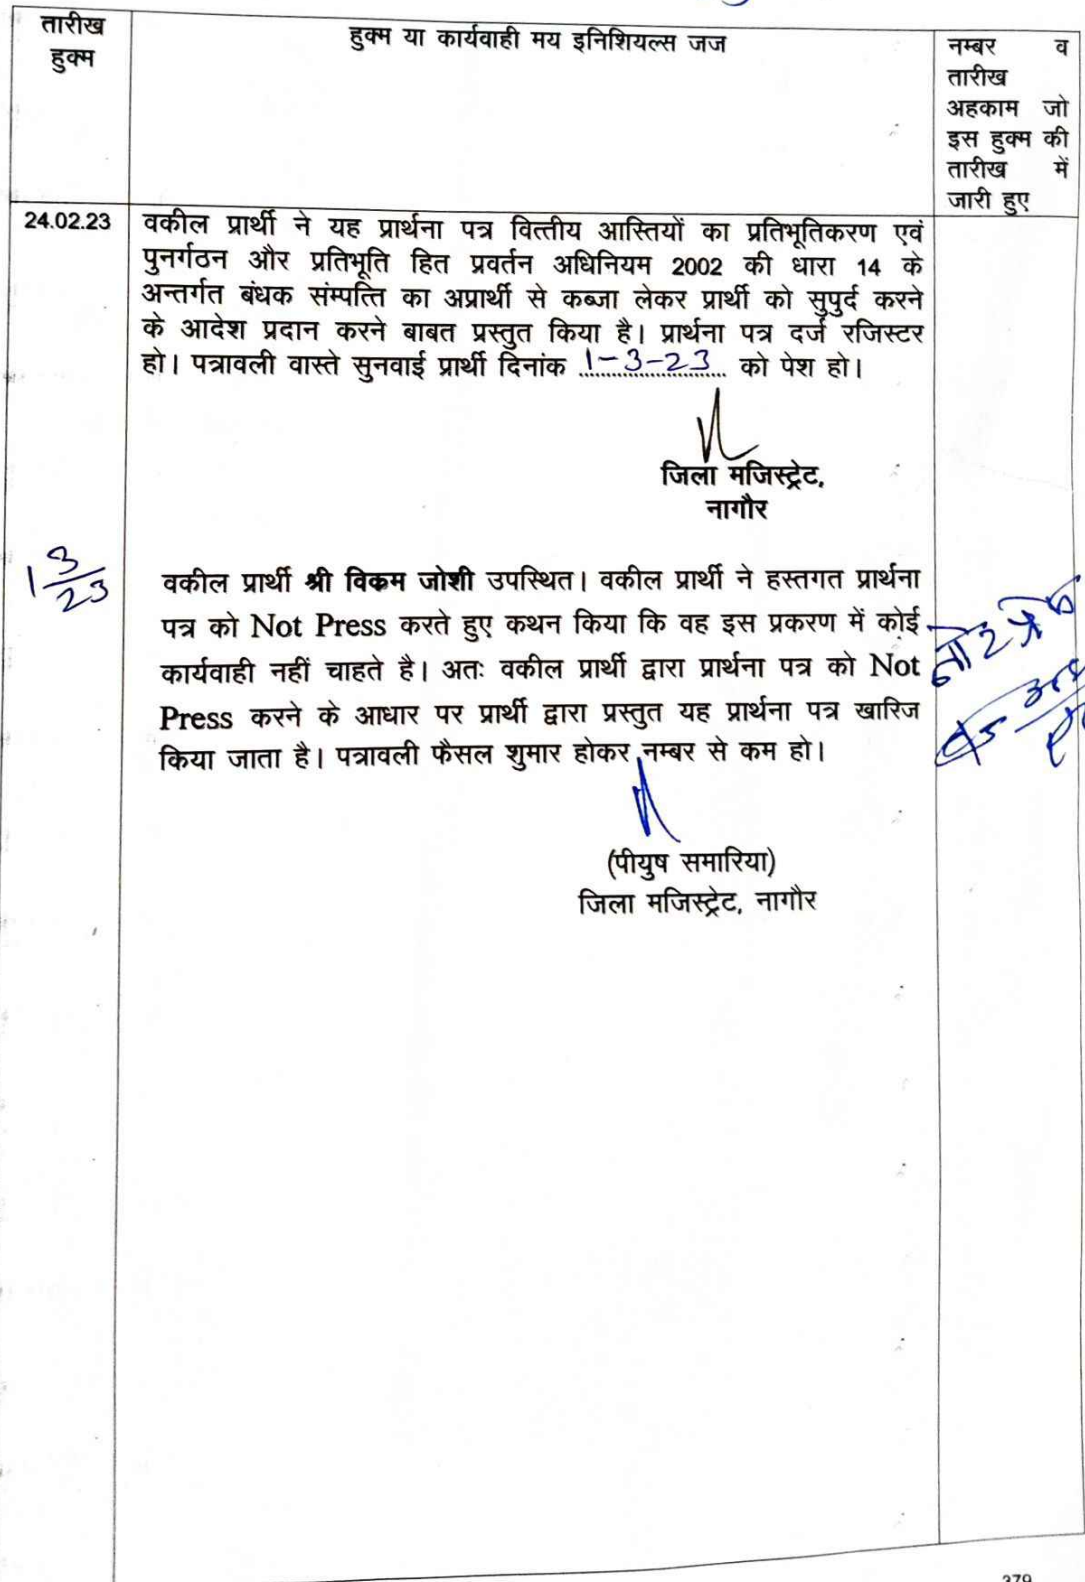 तारीख
हुक्म
हुक्म या कार्यवाही मय इनिशियल्स जज
नम्बर व
तारीख
अहकाम जो
इस हुक्म की
तारीख में
जारी हुए
24.02.23
वकील प्रार्थी ने यह प्रार्थना पत्र वित्तीय आस्तियों का प्रतिभूतिकरण एवं
पुनर्गठन और प्रतिभूति हित प्रवर्तन अधिनियम 2002 की धारा 14 के
अन्तर्गत बंधक संम्पत्ति का अप्रार्थी से कब्जा लेकर प्रार्थी को सुपुर्द करने
के आदेश प्रदान करने बाबत प्रस्तुत किया है। प्रार्थना पत्र दर्ज रजिस्टर
हो। पत्रावली वास्ते सुनवाई प्रार्थी दिनांक 1-3-23 को पेश हो।
जिला मजिस्ट्रेट,
नागौर
1 3/23
वकील प्रार्थी श्री विकम जोशी उपस्थित। वकील प्रार्थी ने हस्तगत प्रार्थना
पत्र को Not Press करते हुए कथन किया कि वह इस प्रकरण में कोई
कार्यवाही नहीं चाहते है। अतः वकील प्रार्थी द्वारा प्रार्थना पत्र को Not
Press करने के आधार पर प्रार्थी द्वारा प्रस्तुत यह प्रार्थना पत्र खारिज
किया जाता है। पत्रावली फैसल शुमार होकर नम्बर से कम हो।
(पीयुष समारिया)
जिला मजिस्ट्रेट, नागौर
379